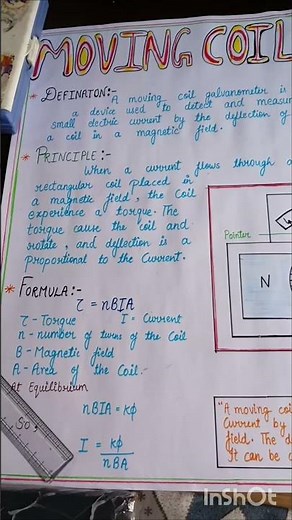 MOVING COIL
* DEFINATON:-
A moving coil galvanometer is
a device used to detect and measu
small electric current by the dyflection of
a coil in a magnetic field.
* PRINCIPLE:-
When a current flows through a
rectangular coil placed in
a magnetic field, the coil
experience a torque. The
torque cause the coil and
rotate, and dyflection is a
proportional to the current.
Pointer
N
* FORMULA:-
τ = nBIA
τ - Torque I = Current
n - number of turns of the Coil
B - Magnetic field
A - Area of the Coil:-
At Equilibrium
nBIA = kϕ
So,
I = kϕ/nBA
"A moving coi
Current by
field. The d
It can be c
InShOt